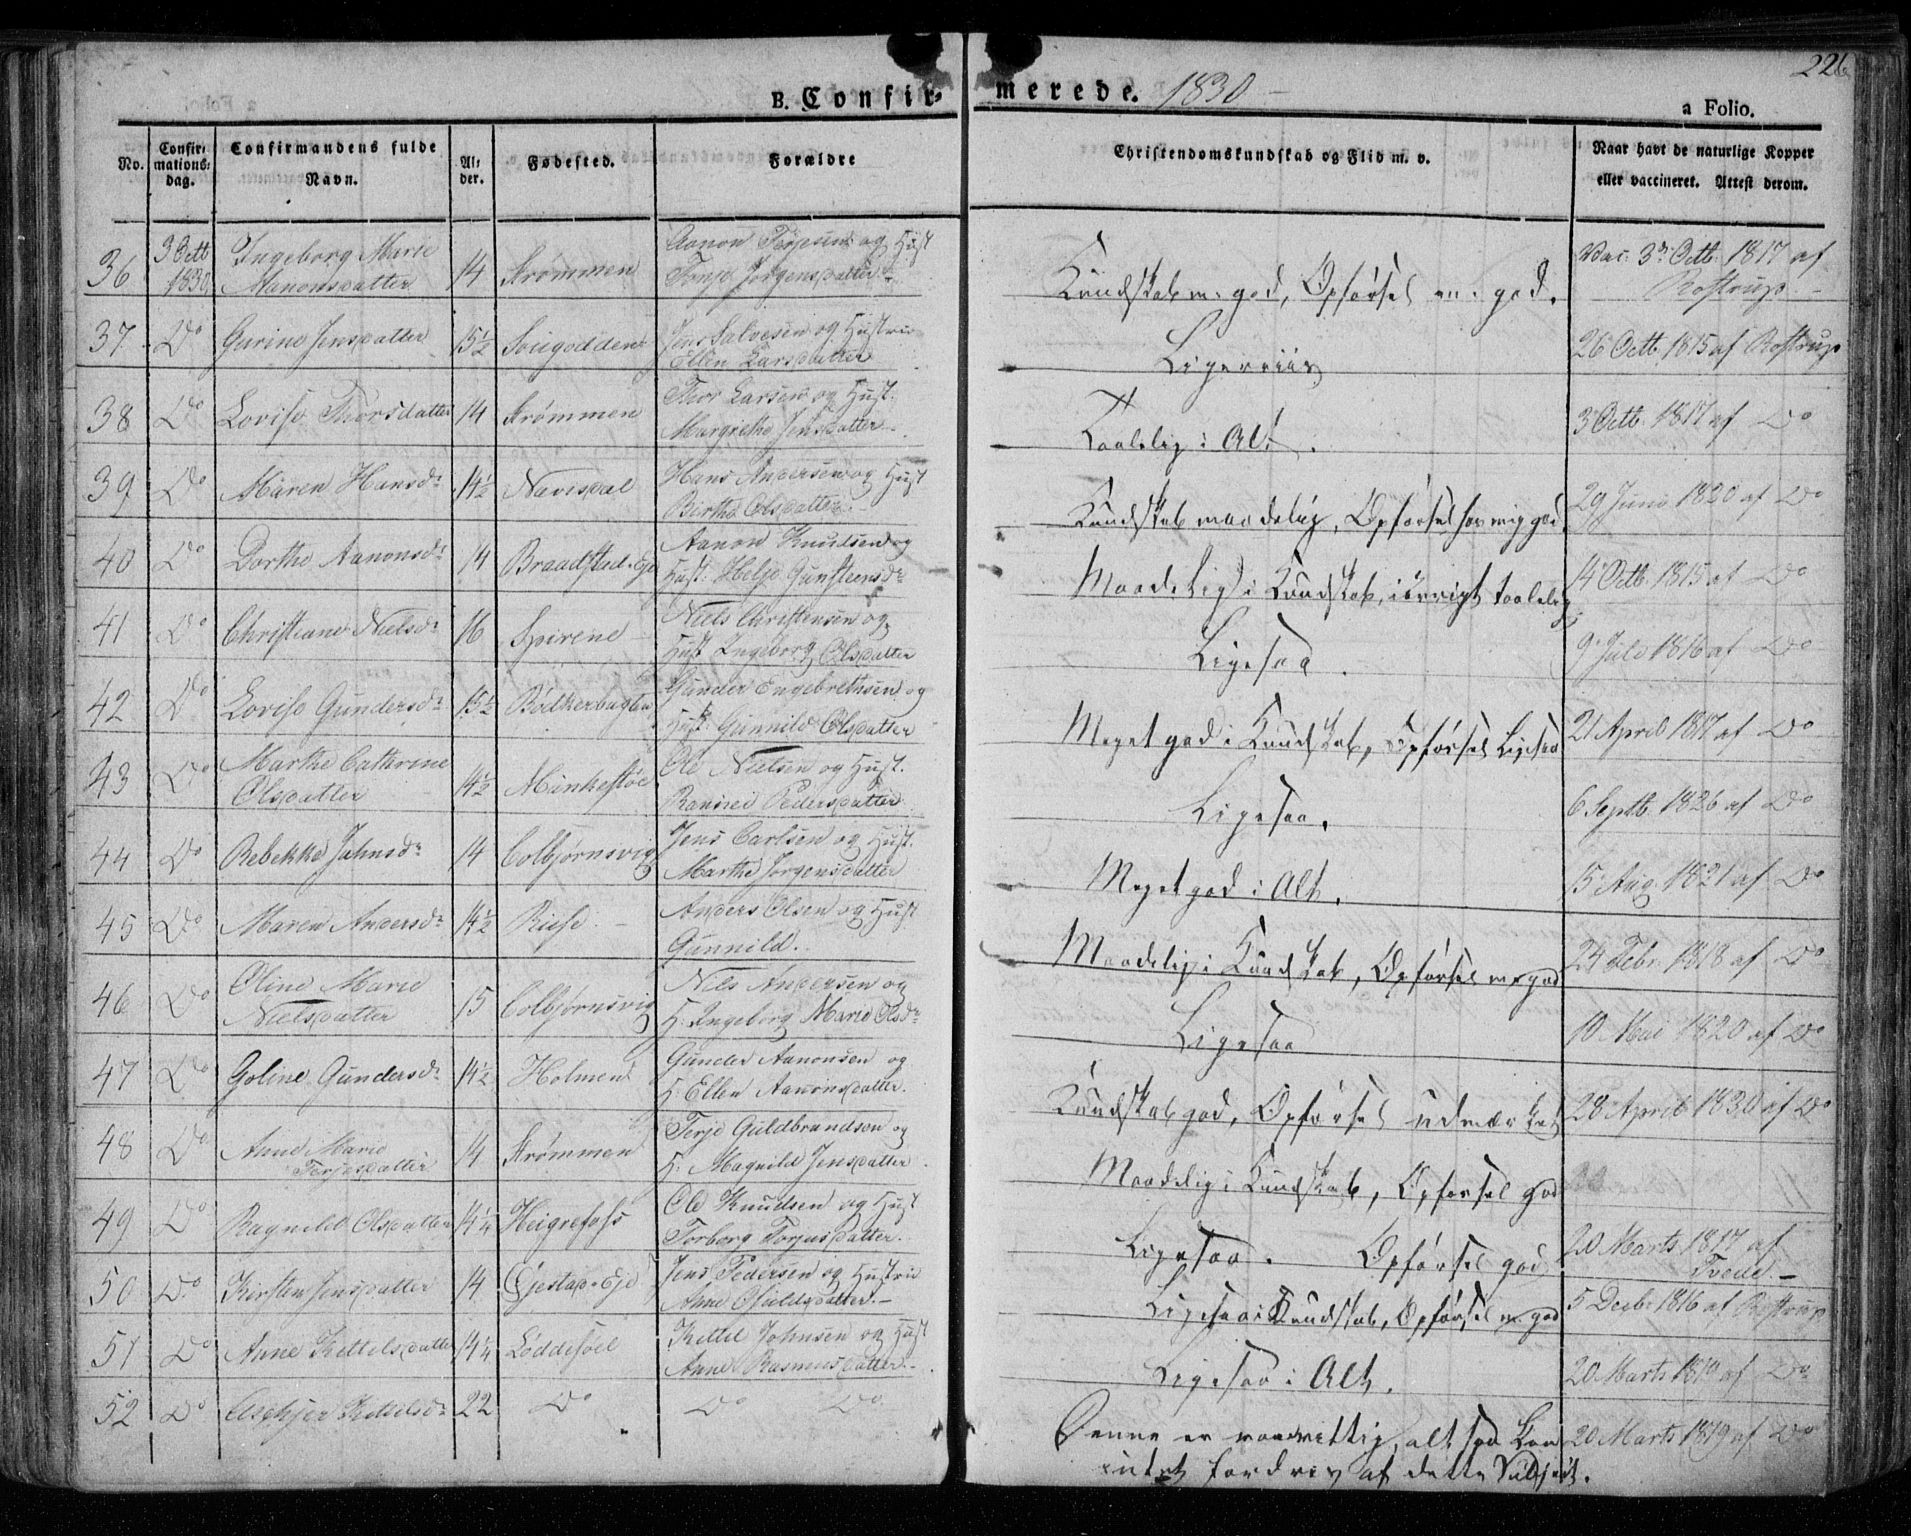 226
B. Confir- merede. 1830
a Folio.
No.
Confir-
mations-
dag.
Confirmandens fulde
Navn.
Al-
der.
Fødested.
Forældre
Christendomskundskab og Flid m. v.
Naar havt de naturlige Kopper
eller vaccineret. Attest derom.
36 3 Octb 1830 Ingeborg Marie
Aanonsdatter 14 Strømmen
Aanon Terjesen og Hust
Tonje Jørgensdatter
Kundskab m. god, Opførsel m. god.
Vac. 3 Octb. 1817 af
Rostrup.
37 Do Gurine Jensdatter 15½
Jens Salvesen og Hustrue
Ellen Larsdatter
Ligerviis
26 Octb 1815 af Rostrup
38 Do Lovise Thorsdatter 14 Strømmen
Thor Larsen og Hust.
Margrethe Jensdatter
Taalelig i Alt.
3 Octb. 1817 af Do
39 Do Maren Hansdr 14½ Navisdal
Hans Andersen og Hust
Birthe Olsdatter
Kundskab maadelig, Opførsel
29 Juni 1820 af Do
40 Do Dorthe Aanonsdr 14 Braadstad-Eje
Aanon Knudsen og
Hust: Helje Gunsteensdr
Maadelig i Kundskab, iøvrigt taalelig
14 Octb. 1815 af Do
41 Do Christiane Nielsdr 16 Spirene
Niels Christensen og
Hust Ingeborg Olsdatter
Ligesaa.
9 Juli 1816 af Do
42 Do Lovise Gundersdr 15½
Gunder Engebrethsen og
Hust: Gunnild Olsdatter
Meget god i Kundskab, Opførsel Ligesaa
21 April 1817 af Do
43 Do Marthe Cathrine
Olsdatter 14½ Munkestøe
Ole Nielsen og Hust.
Ranvei Pedersdatter
Ligesaa.
6 Septb. 1826 af Do
44 Do Rebekke Jahnsdr 14 Colbjørnsvig
Jens Carlsen og Hust.
Marthe Jørgensdatter
Meget god i Alt.
15 Aug. 1821 af Do
45 Do Maren Andersdr 14½ Riise
Anders Olsen og Hust
Gunnild.
Maadelig i Kundskab, Opførsel m. god
24 Febr. 1818 af Do
46 Do Oline Marie
Nielsdatter 15 Colbjørnsvig
Niels Andersen og
H. Ingeborg Marie Olsdr
Ligesaa
10 Mai 1820 af Do
47 Do Goline Gundersdr 14½ Holmen
Gunder Aanonsen og
H: Ellen Aanonsdatter.
Kundskab god, Opførsel udmærket
28 April 1830 af Do
48 Do Anne Marie
Terjesdatter 14 Strømmen
Terje Guldbrandsen og
H: Magnild Jensdatter
Maadelig i Kundskab, Opførsel god
49 Do Ragnild Olsdatter 14¼ Heigrefoss
Ole Knudsen og Hust
Torborg Torjusdatter.
Ligesaa. Opførsel god
20 Marts 1817 af
Tvede.
50 Do Kirsten Jensdatter 14 Gjestad-Eje
Jens Pedersen og Hustrue
Anne Osuldsdatter.
Ligesaa i Kundskab, Opførsel m. god
5 Decbr 1816 af Rostrup
51 Do Anne Kettelsdatter 14¼ Løddesøel
Kettel Johnsen og Hust
Anne Rasmusdatter.
Ligesaa i Alt.
20 Marts 1819 af Do
52 Do Kittelsdr 22 Do
Do Do
Denne er vanvittig, alt saa kan
intet fordres af dette Subject.
20 Marts 1819 af Do